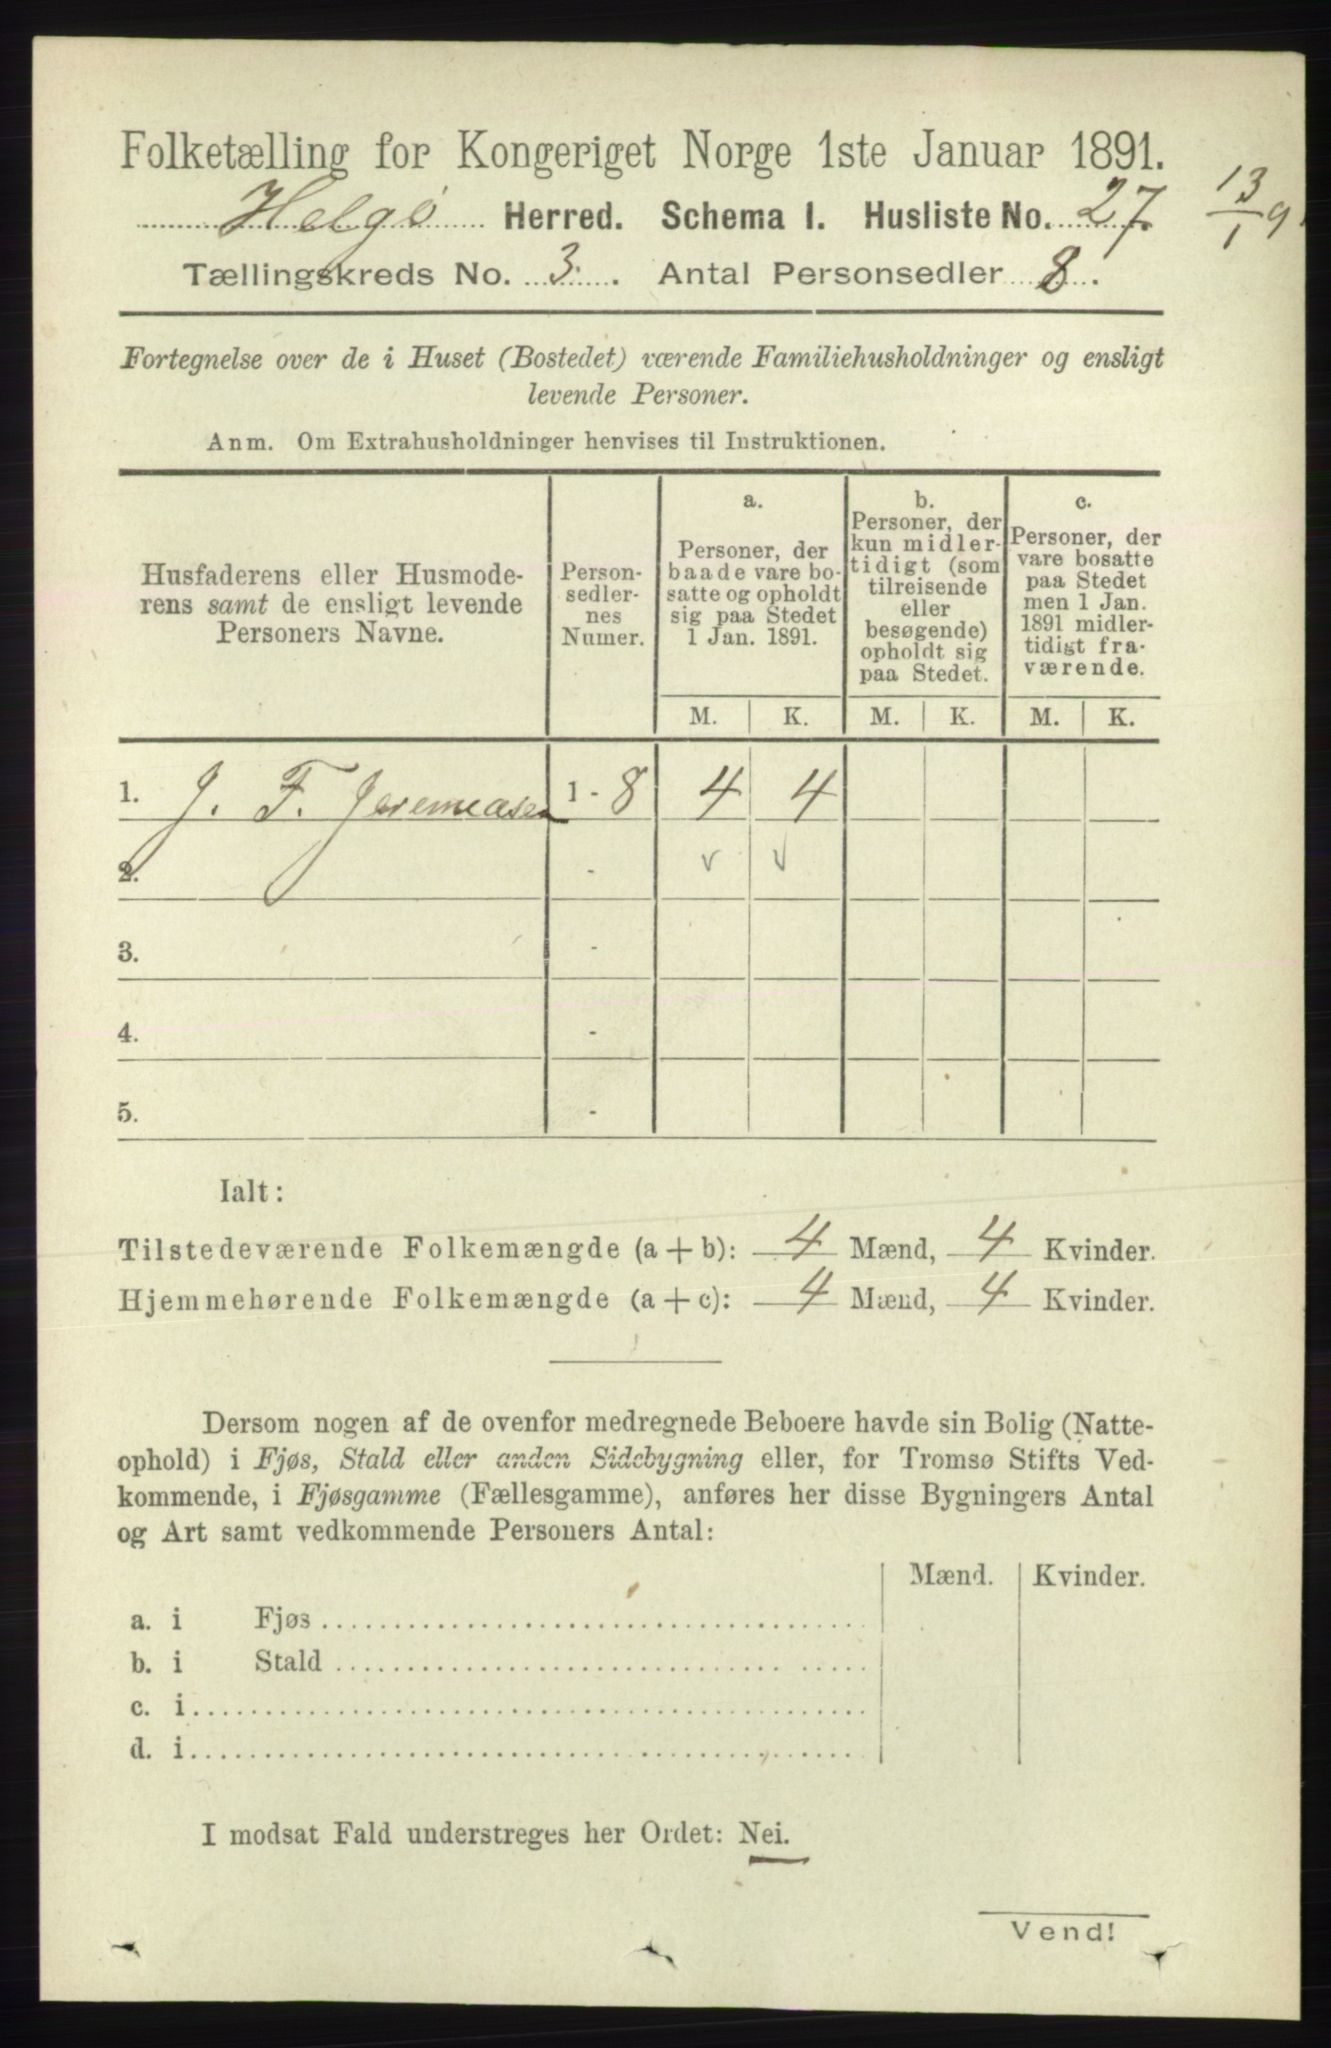 Folketælling for Kongeriget Norge 1ste Januar 1891.
Helgö Herred. Schema I. Husliste No. 27. 13/1 9
Tællingskreds No. 3. Antal Personsedler 8.
Fortegnelse over de i Huset (Bostedet) værende Familiehusholdninger og ensligt
levende Personer.
Anm. Om Extrahusholdninger henvises til Instruktionen.
Husfaderens eller Husmode-
rens samt de ensligt levende
Personers Navne.
Person-
sedler-
nes
Numer.
a.
Personer, der
baade vare bo-
satte og opholdt
sig paa Stedet
1 Jan. 1891.
b.
Personer, der
kun midler-
tidigt (som
tilreisende
eller
besøgende)
opholdt sig
paa Stedet.
c.
Personer, der
vare bosatte
paa Stedet
men 1 Jan.
1891 midler-
tidigt fra-
værende.
M. K. M. K. M. K.
1. J. F. Jeremeasen 1 - 8 4 4
2. - v v
3. -
4. -
5. -
Ialt:
Tilstedeværende Folkemængde (a + b): 4 Mænd, 4 Kvinder.
Hjemmehørende Folkemængde (a + c): 4 Mænd, 4 Kvinder.
Dersom nogen af de ovenfor medregnede Beboere havde sin Bolig (Natte-
ophold) i Fjøs, Stald eller anden Sidebygning eller, for Tromsø Stifts Ved-
kommende, i Fjøsgamme (Fællesgamme), anføres her disse Bygningers Antal
og Art samt vedkommende Personers Antal:
Mænd. Kvinder.
a. i Fjøs
b. i Stald
c. i
d. i
I modsat Fald understreges her Ordet: Nei.
Vend!